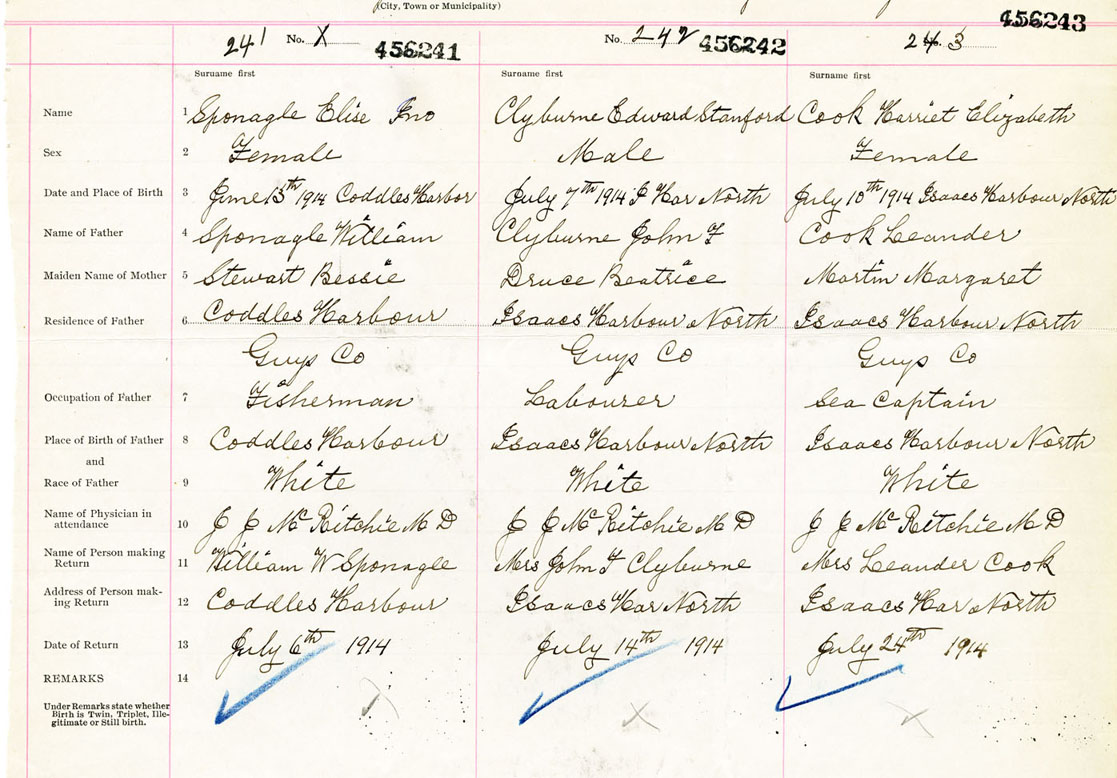 (City, Town or Municipality)
241 No. X 456241 No. 242 456242 243 456243
Surname first Surname first Surname first
Name 1 Sponagle Elise Clyburne Edward Stanford Cook Harriet Elizabeth
Sex 2 Female Male Female
Date and Place of Birth 3 June 13th 1914 Coddles Harbor July 7th 1914 I Har North July 10th 1914 Isaacs Harbour North
Name of Father 4 Sponagle William Clyburne John F Cook Leander
Maiden Name of Mother 5 Stewart Bessie Druce Beatrice Martin Margaret
Residence of Father 6 Coddles Harbour Isaacs Harbour North Isaacs Harbour North
Guys Co Guys Co Guys Co
Occupation of Father 7 Fisherman Labourer Sea Captain
Place of Birth of Father 8 Coddles Harbour Isaacs Harbour North Isaacs Harbour North
and
Race of Father 9 White White White
Name of Physician in
attendance 10 J J McRitchie M D J J McRitchie M D J J McRitchie M D
Name of Person making
Return 11 William W Sponagle Mrs John F Clyburne Mrs Leander Cook
Address of Person mak-
ing Return 12 Coddles Harbour Isaacs Har North Isaacs Har North
Date of Return 13 July 6th 1914 July 14th 1914 July 24th 1914
REMARKS 14
Under Remarks state whether
Birth is Twin, Triplet, Ille-
gitimate or Still birth.